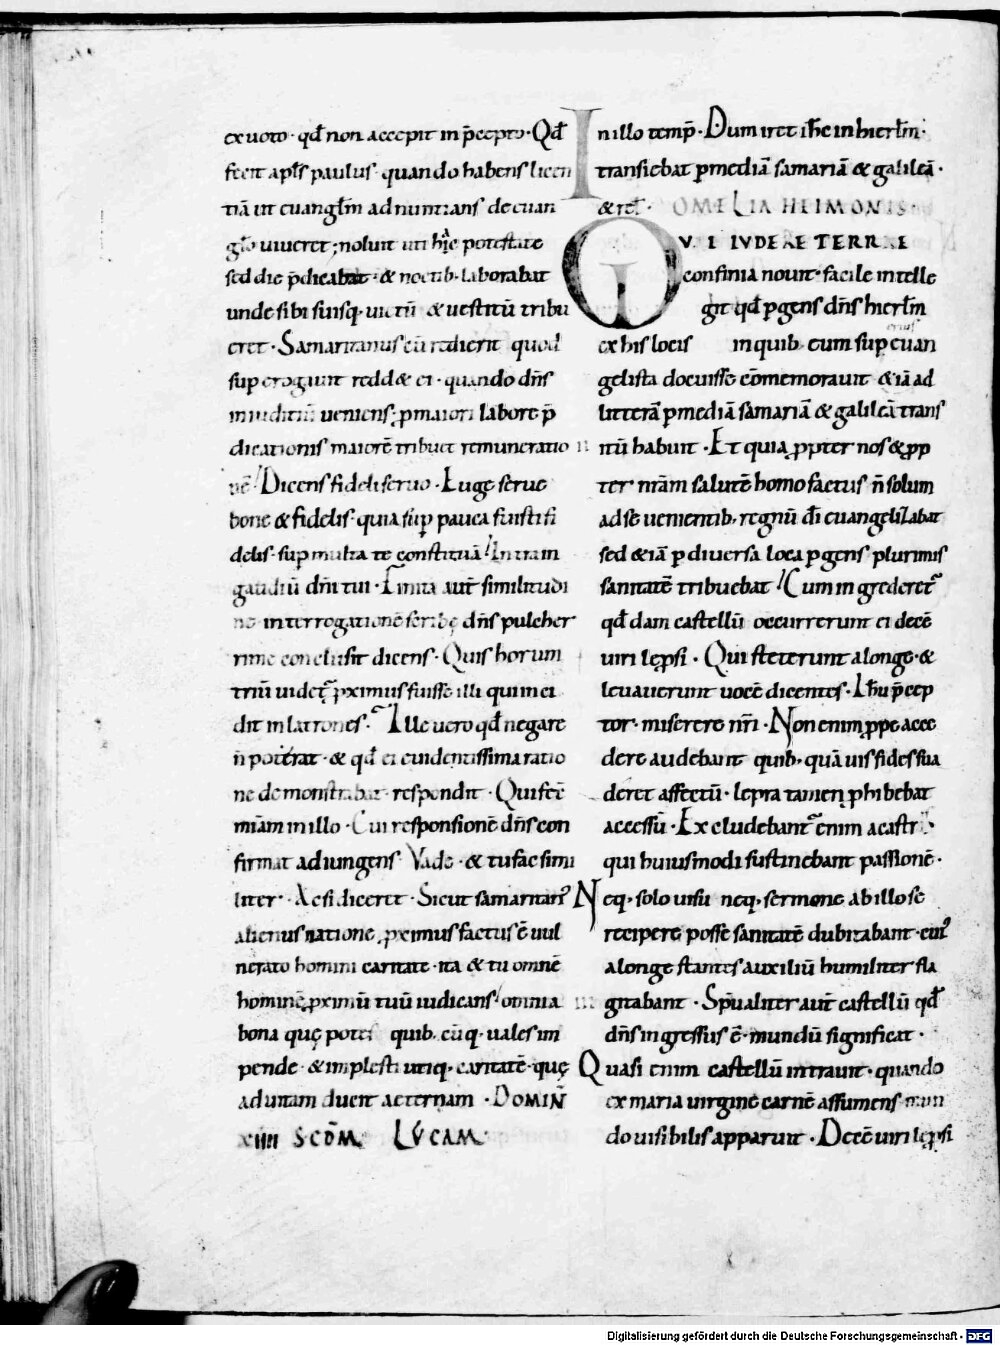 ex uoto · qđ non accepit in p̄cepto · Qđ
fecit apłs paulus · quando habens licen
tiā ut euangłm adnuntians de euan
gło uiueret ; noluit uti hac potestate
sed die p̄dicabat · & noctib· laborabat
unde sibi suisq· uictū & uestitū tribu
eret · Samaritanus cū redierit quod
sup erogiuit redd& ei · quando dn̄s
in iudiciū ueniens ꝓ maiori labore p̄
dicationis maiorē tribuet remuneratio
nē / Dicens fideli seruo · Euge serue
bone & fidelis · quia sup̱ pauca fuisti fi
delis · sup̱ multa te constituā / Intra in
gaudiū dn̄i tui · Finita aut̄ similitudi
ne interrogationē scribę dn̄s pulcher
rime conclusit dicens · Quis horum
triū uidet᷑ ꝓximus fuisse illi qui inci
dit in latrones · Ille uero qđ negare
n̄ poterat · & qđ ei euidentissima ratio
ne demonstrabat · respondit · Qui fecē
miām in illo · Cui responsionē dn̄s con
firmat adiungens Vade · & tu fac simi
liter · Ac si diceret · Sicut samaritan᷒
alienus natione ꝓximus factus ē uul
nerato homini caritate · ita & tu omnē
hominē ꝓximū tuū iudicans / omnia
bona quę potes quib· cūq· uales im
pende · & implesti utiq· caritatē · quę
ad uitam ducit aeternam · DOMIN̄
xiiii SCD̄M LVCAM
In illo temp̄ · Dum iret iħc in hierłm ·
transiebat ꝑ mediā samariā & galileā ·
& reł · OMELIA HEIMONIS ·
QVI IVDEAE TERRAE
confinia nouit · facile intelle
git qđ ꝑgens dn̄s hierłm
ex his locis in quib· eum sup̱ euan
gelista docuisse cōmemorauit & iā ad
litterā ꝑ mediā samariā & galileā trans
itū habuit · Et quia ꝓpter nos & ꝓp
ter nr̄am salutē homo factus n̄ solum
ad se uenientib· regnū dī euangelizabat
sed & iā ꝑ diuersa loca ꝑgens plurimis
sanitatē tribuebat / Cum ingrederet᷑
qđ dam castellū occurrerunt ei decē
uiri lep̱si · Qui steterunt a longe · &
leuauerunt uocē dicentes · Iħu p̄cep
tor · miserere nr̄i · Non enim ꝓpe acce
dere audebant quib· quāuis fides sua
deret affectū · lepra tamen ꝓhibebat
accessū · Excludebant᷑ enim a castris
qui huiusmodi sustinebant passionē ·
Neq· solo uisu neq· sermone ab illo se
recipere posse sanitatē dubitabant · eui᷒
a longe stantes auxiliū humiliter fla
gitabant · Sp̄ualiter aut̄ castellū qđ
dn̄s ingressus ē · mundū significat ·
Quasi enim castellū intrauit · quando
ex maria uirgine carnē assumens mun
do uisibilis apparuit · Decē uiri lep̱si